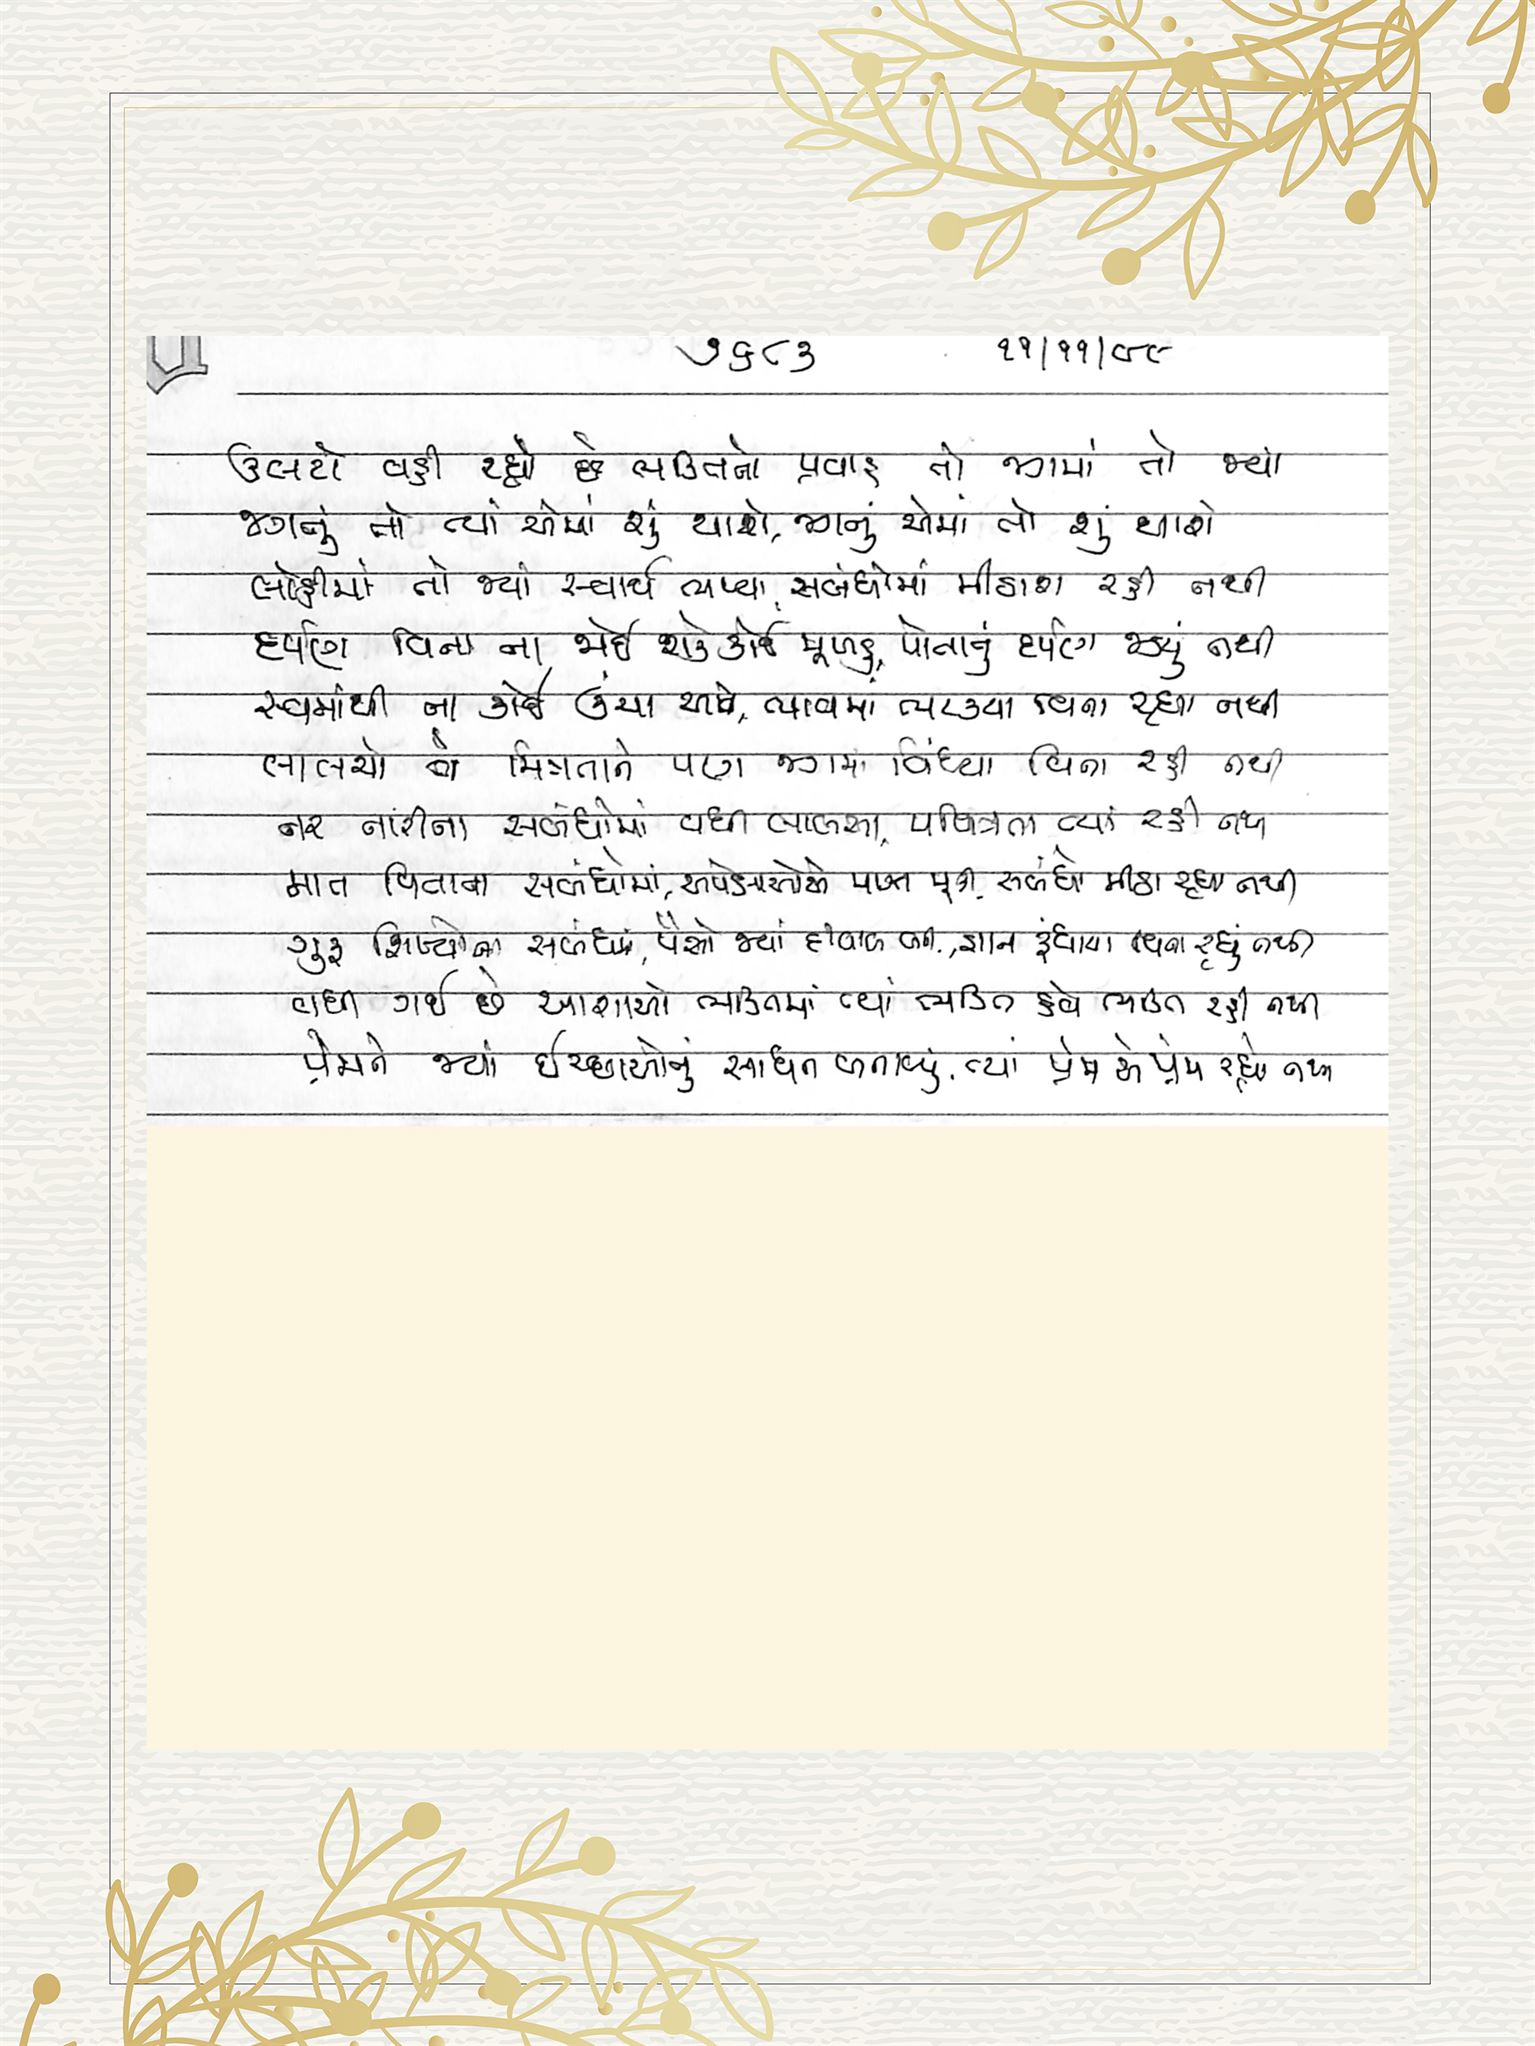 ૭૬૮૩ ૧૧/૧૧/૯૯
ઉલટો વહી રહ્યો છે ભક્તિનો પ્રવાહ તો જગમાં તો જ્યાં
જગનું તો ત્યાં એમાં શું થાશે, જગનું એમાં તો શું થાશે
લોહીમાં તો જ્યાં સ્વાર્થ ભળ્યા, સબંધોમાં મીઠાશ રહી નથી
દર્પણ વિના ના જોઈ શકે કોઈ મુખડું, પોતાનું દર્પણ જડ્યું નથી
સ્વમાંથી ના કોઈ ઉંચા આવે, ભાવમાં ભટક્યા વિના રહ્યા નથી
લાલચો એ મિત્રતાને પણ જગમાં વિંધ્યા વિના રહી નથી
નર નારીના સબંધોમાં વધી લાલસા, પવિત્રતા ત્યાં રહી નથી
માત પિતાના સબંધોમાં, અપેક્ષાઓએ પાડી, સબંધો મીઠા રહ્યા નથી
ગુરુ શિષ્યોના સબંધમાં, પૈસો જ્યાં દીવાલ બની, જ્ઞાન રૂંધાયા વિના રહ્યું નથી
વધી ગઈ છે આશાઓ ભક્તિમાં ત્યાં ભક્તિ હવે ભક્તિ રહી નથી
પ્રેમને જ્યાં ઈચ્છાઓનું સાધન બનાવ્યું, ત્યાં પ્રેમ એ પ્રેમ રહ્યો નથી